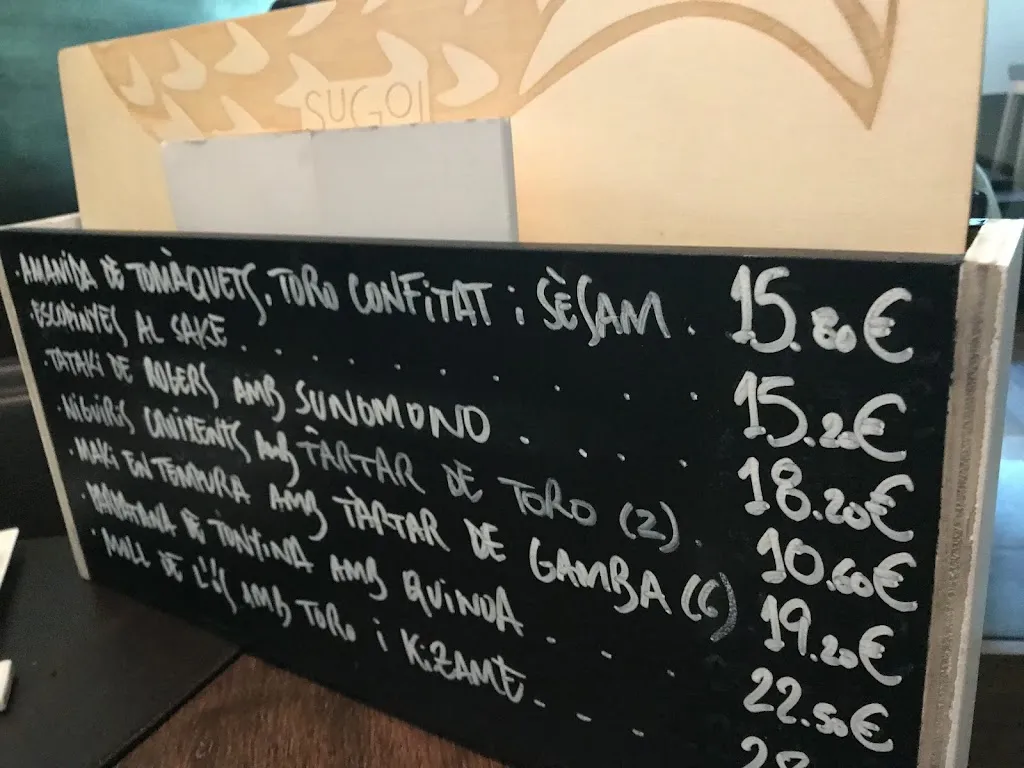 SUGOI
·AMANIDA DE TOMÀQUETS, TORO CONFITAT i SÈSAM. 15.80€
·ESCOPINYES AL SAKE . . . . . . . . 15.20€
·TATAKI DE ROGERS AMB SUNOMONO . . . . 18.20€
·NIGUIRIS CRUIXENTS AMB TARTAR DE TORO (2) . 10.60€
·MAKI EN TEMPURA AMB TÀRTAR DE GAMBA (6) 19.20€
DE TONYINA AMB QUINOA . . . 22.50€
·MOLL DE L'ÓS AMB TORO i KIZAME . . .